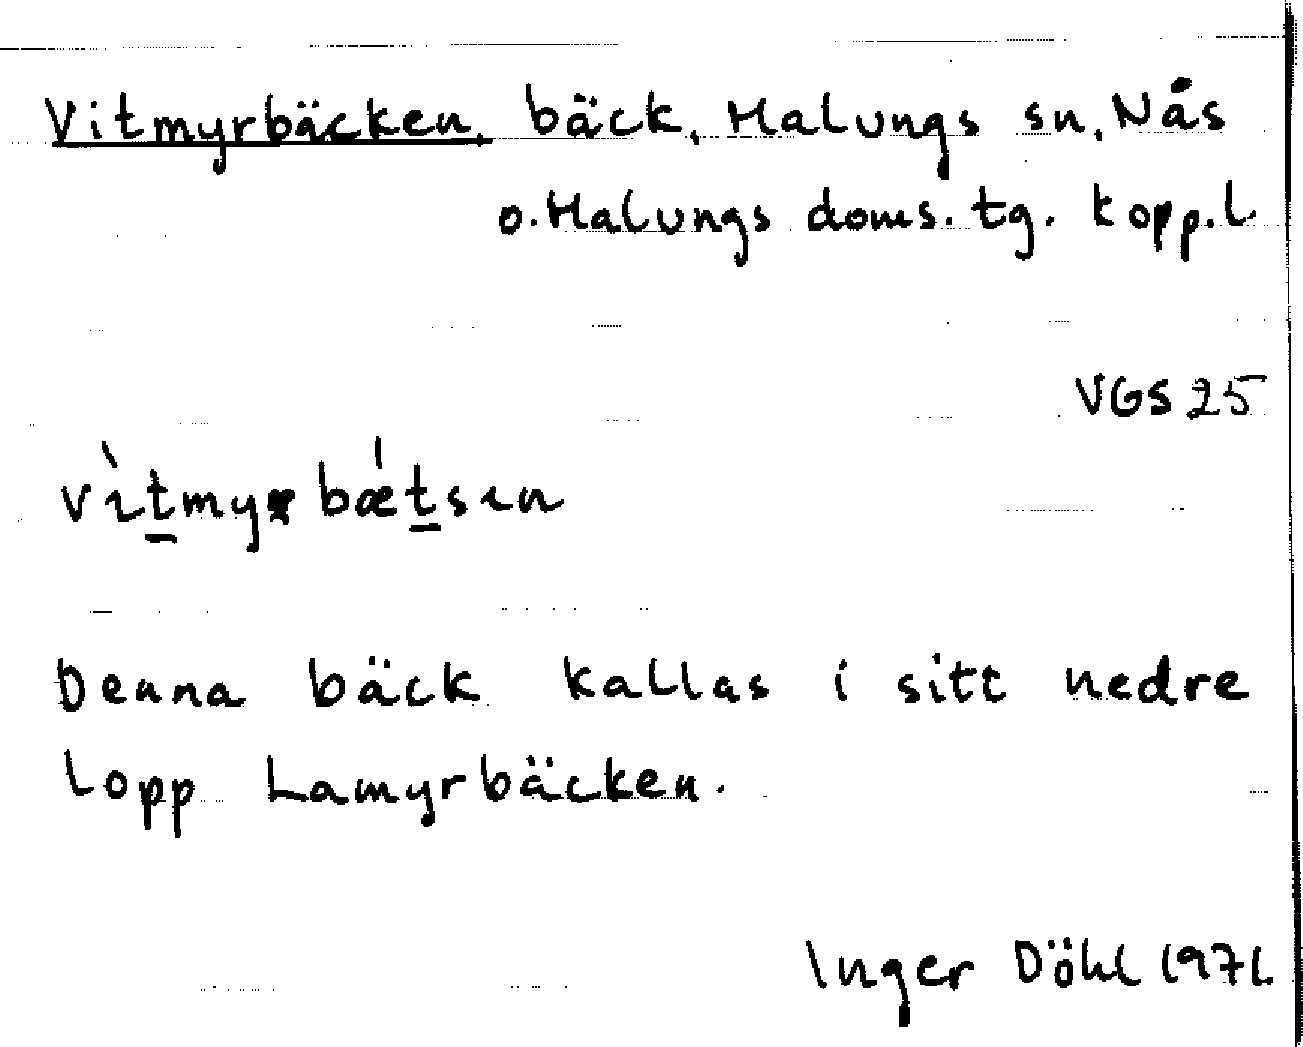 Vitmyrbäcken, bäck, Malungs sn, Nås
o. Malungs doms. tg. Kopp. l.
VGS 25
vìt̲myr bǽt̲sın
Denna bäck kallas i sitt nedre
lopp Lamyrbäcken.
Inger Döhl 1971.